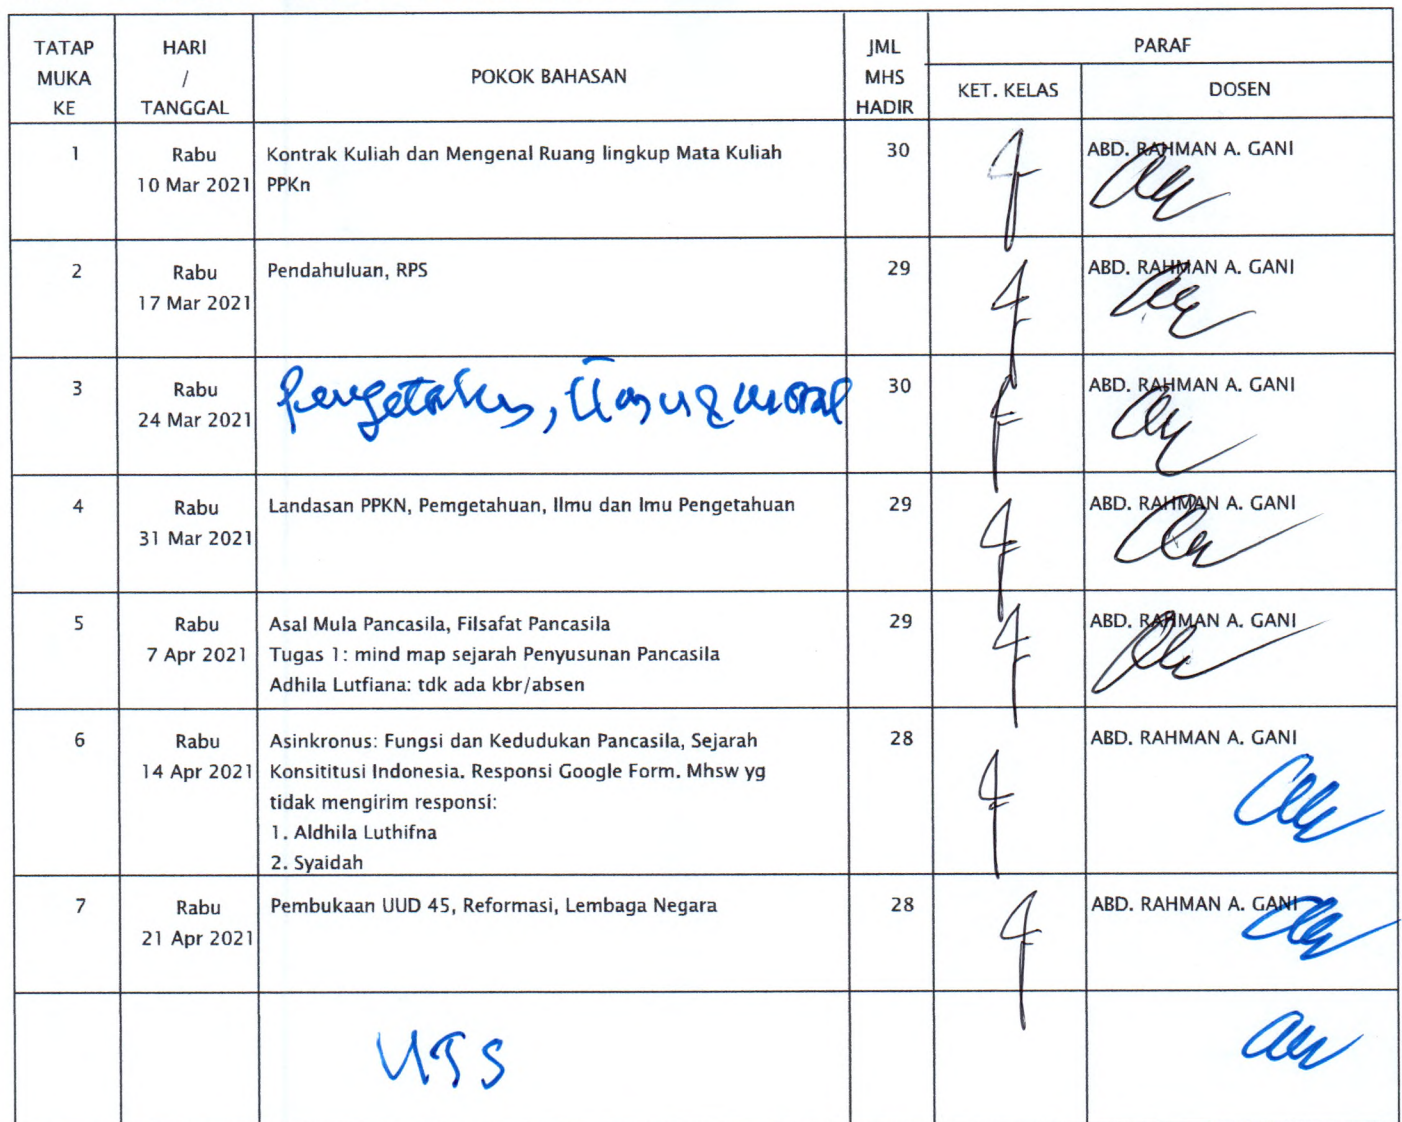 TATAP MUKA KE
HARI / TANGGAL
POKOK BAHASAN
JML MHS HADIR
PARAF
KET. KELAS
DOSEN
1
Rabu
10 Mar 2021
Kontrak Kuliah dan Mengenal Ruang lingkup Mata Kuliah
PPKn
30
ABD. RAHMAN A. GANI
2
Rabu
17 Mar 2021
Pendahuluan, RPS
29
ABD. RAHMAN A. GANI
3
Rabu
24 Mar 2021
moral
30
ABD. RAHMAN A. GANI
4
Rabu
31 Mar 2021
Landasan PPKN, Pemgetahuan, Ilmu dan Imu Pengetahuan
29
ABD. RAHMAN A. GANI
5
Rabu
7 Apr 2021
Asal Mula Pancasila, Filsafat Pancasila
Tugas 1: mind map sejarah Penyusunan Pancasila
Adhila Lutfiana: tdk ada kbr/absen
29
ABD. RAHMAN A. GANI
6
Rabu
14 Apr 2021
Asinkronus: Fungsi dan Kedudukan Pancasila, Sejarah
Konsititusi Indonesia. Responsi Google Form. Mhsw yg
tidak mengirim responsi:
1. Aldhila Luthifna
2. Syaidah
28
ABD. RAHMAN A. GANI
7
Rabu
21 Apr 2021
Pembukaan UUD 45, Reformasi, Lembaga Negara
28
ABD. RAHMAN A. GANI
UTS